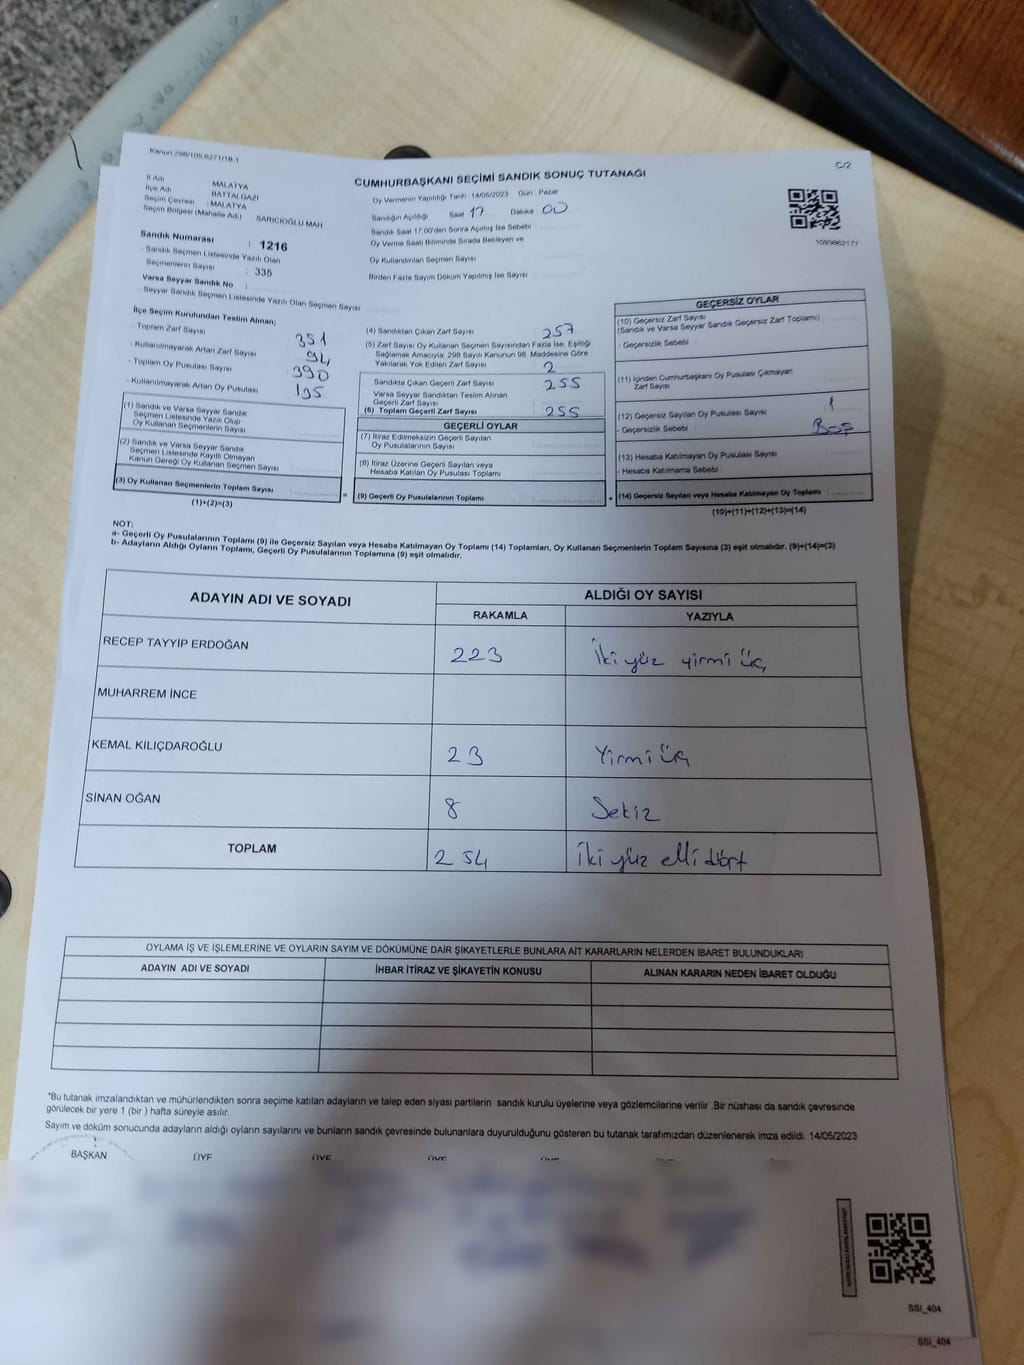 Kanun:298/105,6271/18-1
C/2
CUMHURBAŞKANI SEÇİMİ SANDIK SONUÇ TUTANAĞI
İl Adı MALATYA
İlçe Adı BATTALGAZİ
Seçim Çevresi : MALATYA
Seçim Bölgesi (Mahalle Adı) SARICIOĞLU MAH
Sandık Numarası : 1216
- Sandık Seçmen Listesinde Yazılı Olan
Seçmenlerin Sayısı : 335
Varsa Seyyar Sandık No :
- Seyyar Sandık Seçmen Listesinde Yazılı Olan Seçmen Sayısı
Oy Vermenin Yapıldığı Tarih :14/05/2023 Gün : Pazar
Sandığın Açıldığı Saat 17 Dakika 00
Sandık Saat 17.00'den Sonra Açımış İse Sebebi
Oy Verme Saati Bitiminde Sırada Bekleyen ve
Oy Kullandırılan Seçmen Sayısı
Birden Fazla Sayım Döküm Yapılmış İse Sayısı
1099862177
İlçe Seçim Kurulundan Teslim Alınan;
- Toplam Zarf Sayısı 351
- Kullanılmayarak Artan Zarf Sayısı 94
- Toplam Oy Pusulası Sayısı 390
- Kullanılmayarak Artan Oy Pusulası
(1) Sandık ve Varsa Seyyar Sandık
Seçmen Listesinde Yazılı Olup
Oy Kullanan Seçmenlerin Sayısı
(2) Sandık ve Varsa Seyyar Sandık
Seçmen Listesinde Kayıtlı Olmayan
Kanun Gereği Oy Kullanan Seçmen Sayısı
(3) Oy Kullanan Seçmenlerin Toplam Sayısı
(1)+(2)=(3)
(4) Sandıktan Çıkan Zarf Sayısı 257
(5) Zarf Sayısı Oy Kullanan Seçmen Sayısından Fazla İse, Eşitliği
Sağlamak Amacıyla, 298 Sayılı Kanunun 98. Maddesine Göre
Yakılarak Yok Edilen Zarf Sayısı 2
Sandıkta Çıkan Geçerli Zarf Sayısı 255
Varsa Seyyar Sandıktan Teslim Alınan
Geçerli Zarf Sayısı
(6) Toplam Geçerli Zarf Sayısı 255
GEÇERLİ OYLAR
(7) İtiraz Edilmeksizin Geçerli Sayılan
Oy Pusulalarının Sayısı
(8) İtiraz Üzerine Geçerli Sayılan veya
Hesaba Katılan Oy Pusulası Toplamı
= (9) Geçerli Oy Pusulalarının Toplamı
GEÇERSİZ OYLAR
(10) Geçersiz Zarf Sayısı
(Sandık ve Varsa Seyyar Sandık Geçersiz Zarf Toplamı)
- Geçersizlik Sebebi :
(11) İçinden Cumhurbaşkanı Oy Pusulası Çıkmayan
Zarf Sayısı
(12) Geçersiz Sayılan Oy Pusulası Sayısı 1
- Geçersizlik Sebebi : Boş
(13) Hesaba Katılmayan Oy Pusulası Sayısı
- Hesaba Katılmama Sebebi :
+ (14) Geçersiz Sayılan veya Hesaba Katılmayan Oy Toplamı
(10)+(11)+(12)+(13)=(14)
NOT:
a- Geçerli Oy Pusulalarının Toplamı (9) ile Geçersiz Sayılan veya Hesaba Katılmayan Oy Toplamı (14) Toplamları, Oy Kullanan Seçmenlerin Toplam Sayısına (3) eşit olmalıdır. (9)+(14)=(3)
b- Adayların Aldığı Oyların Toplamı, Geçerli Oy Pusulalarının Toplamına (9) eşit olmalıdır.
ADAYIN ADI VE SOYADI ALDIĞI OY SAYISI
RAKAMLA YAZIYLA
RECEP TAYYİP ERDOĞAN 223 İki yüz yirmi üç
MUHARREM İNCE
KEMAL KILIÇDAROĞLU 23 Yirmi üç
SİNAN OĞAN 8 Sekiz
TOPLAM 254 iki yüz elli dört
OYLAMA İŞ VE İŞLEMLERİNE VE OYLARIN SAYIM VE DÖKÜMÜNE DAİR ŞİKAYETLERLE BUNLARA AİT KARARLARIN NELERDEN İBARET BULUNDUKLARI
ADAYIN ADI VE SOYADI İHBAR İTİRAZ VE ŞİKAYETİN KONUSU ALINAN KARARIN NEDEN İBARET OLDUĞU
*Bu tutanak imzalandıktan ve mühürlendikten sonra seçime katılan adayların ve talep eden siyasi partilerin sandık kurulu üyelerine veya gözlemcilerine verilir .Bir nüshası da sandık çevresinde
görülecek bir yere 1 (bir ) hafta süreyle asılır.
Sayım ve döküm sonucunda adayların aldığı oyların sayılarını ve bunların sandık çevresinde bulunanlara duyurulduğunu gösteren bu tutanak tarafımızdan düzenlenerek imza edildi. 14/05/2023
BAŞKAN ÜYE ÜYE ÜYE
SSI_404
SSI_404